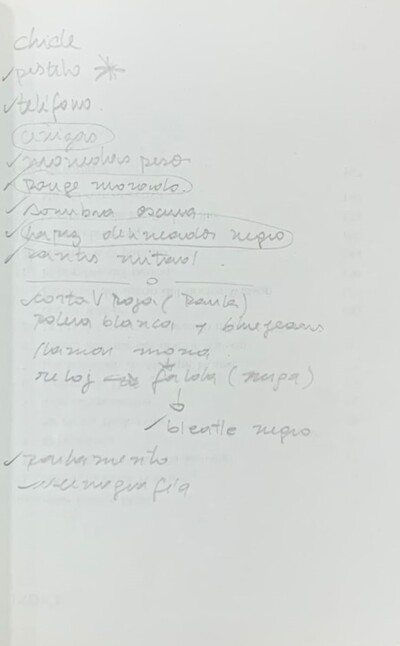 chicle
✓pestilo
✓teléfono.
amigas
✓monedas peso
✓Rouge morado.
✓sombra oscura.
✓lapiz delineador negro
✓pantis
✓corta V roja (Paula)
polera blanca y bluejeans
llamar mona
reloj → falda (negra)
✓beatle negro
✓